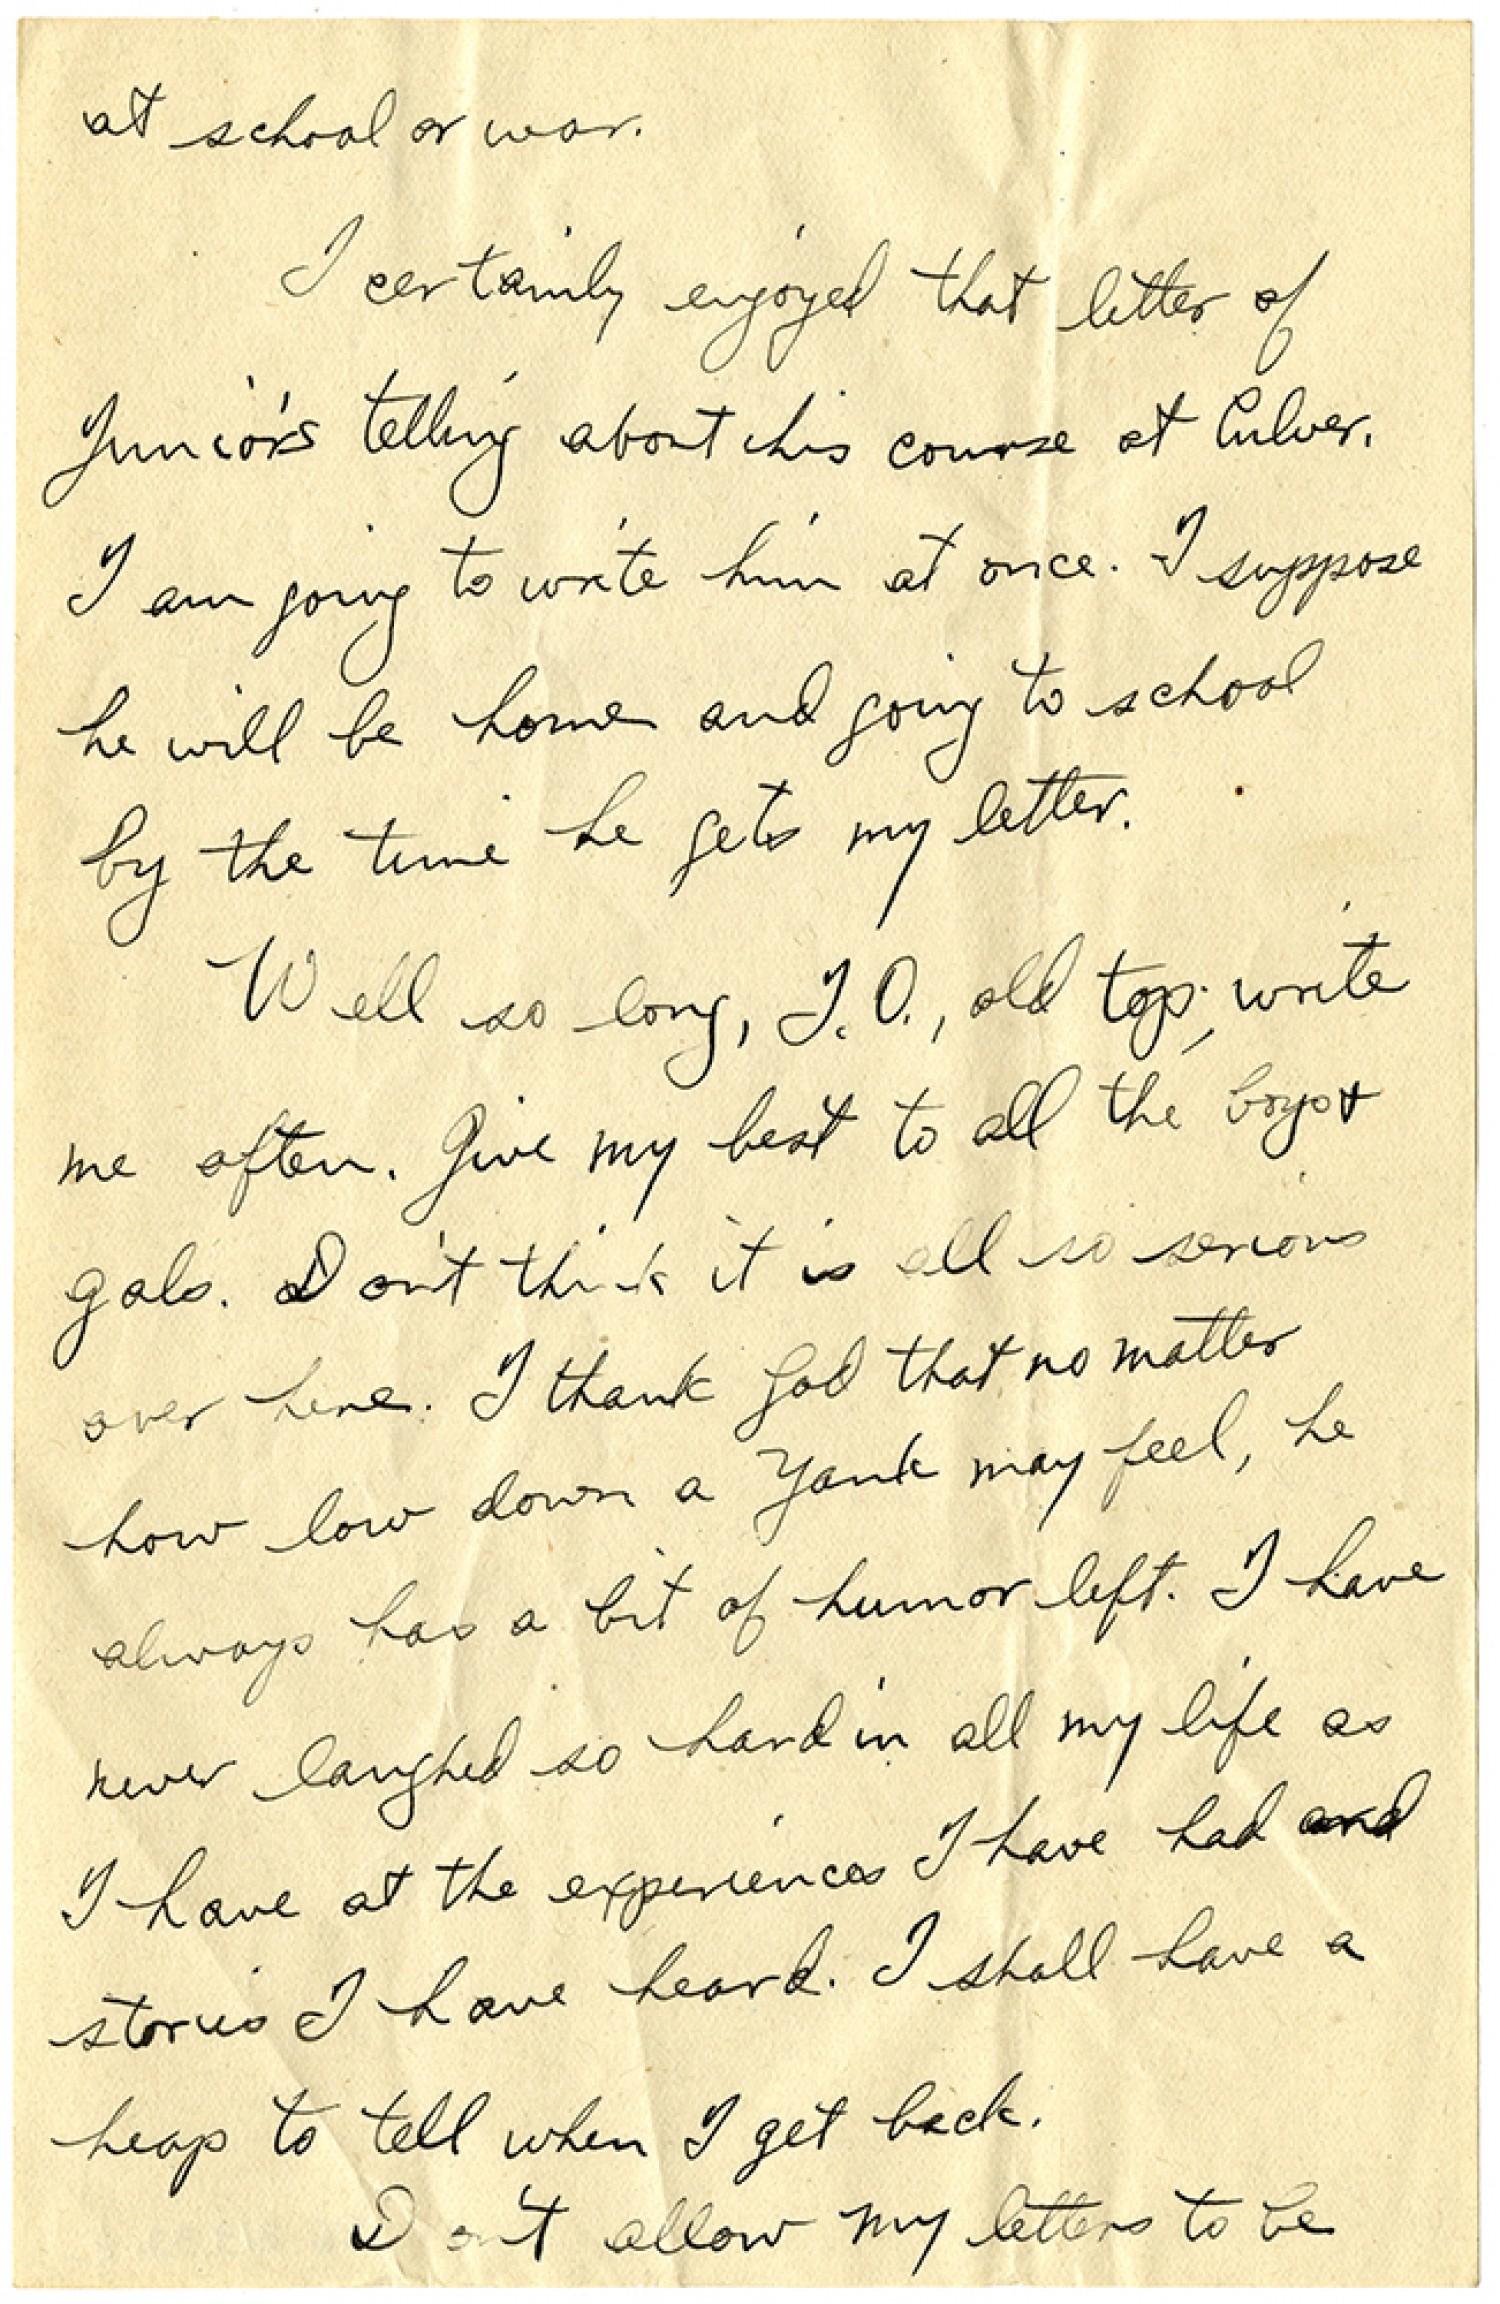 at school or war.
I certainly enjoyed that letter of
Junior's telling about his course at Culver.
I am going to write him at once. I suppose
he will be home and going to school
by the time he gets my letter.
Well so long, J.O., old top, write
me often. Give my best to all the boys &
gals. Don't think it is all so serious
over here. I thank God that no matter
how low down a Yank may feel, he
always has a bit of humor left. I have
never laughed so hard in all my life as
I have at the experiences I have had and
stories I have heard. I shall have a
heap to tell when I get back.
Don't allow my letters to be